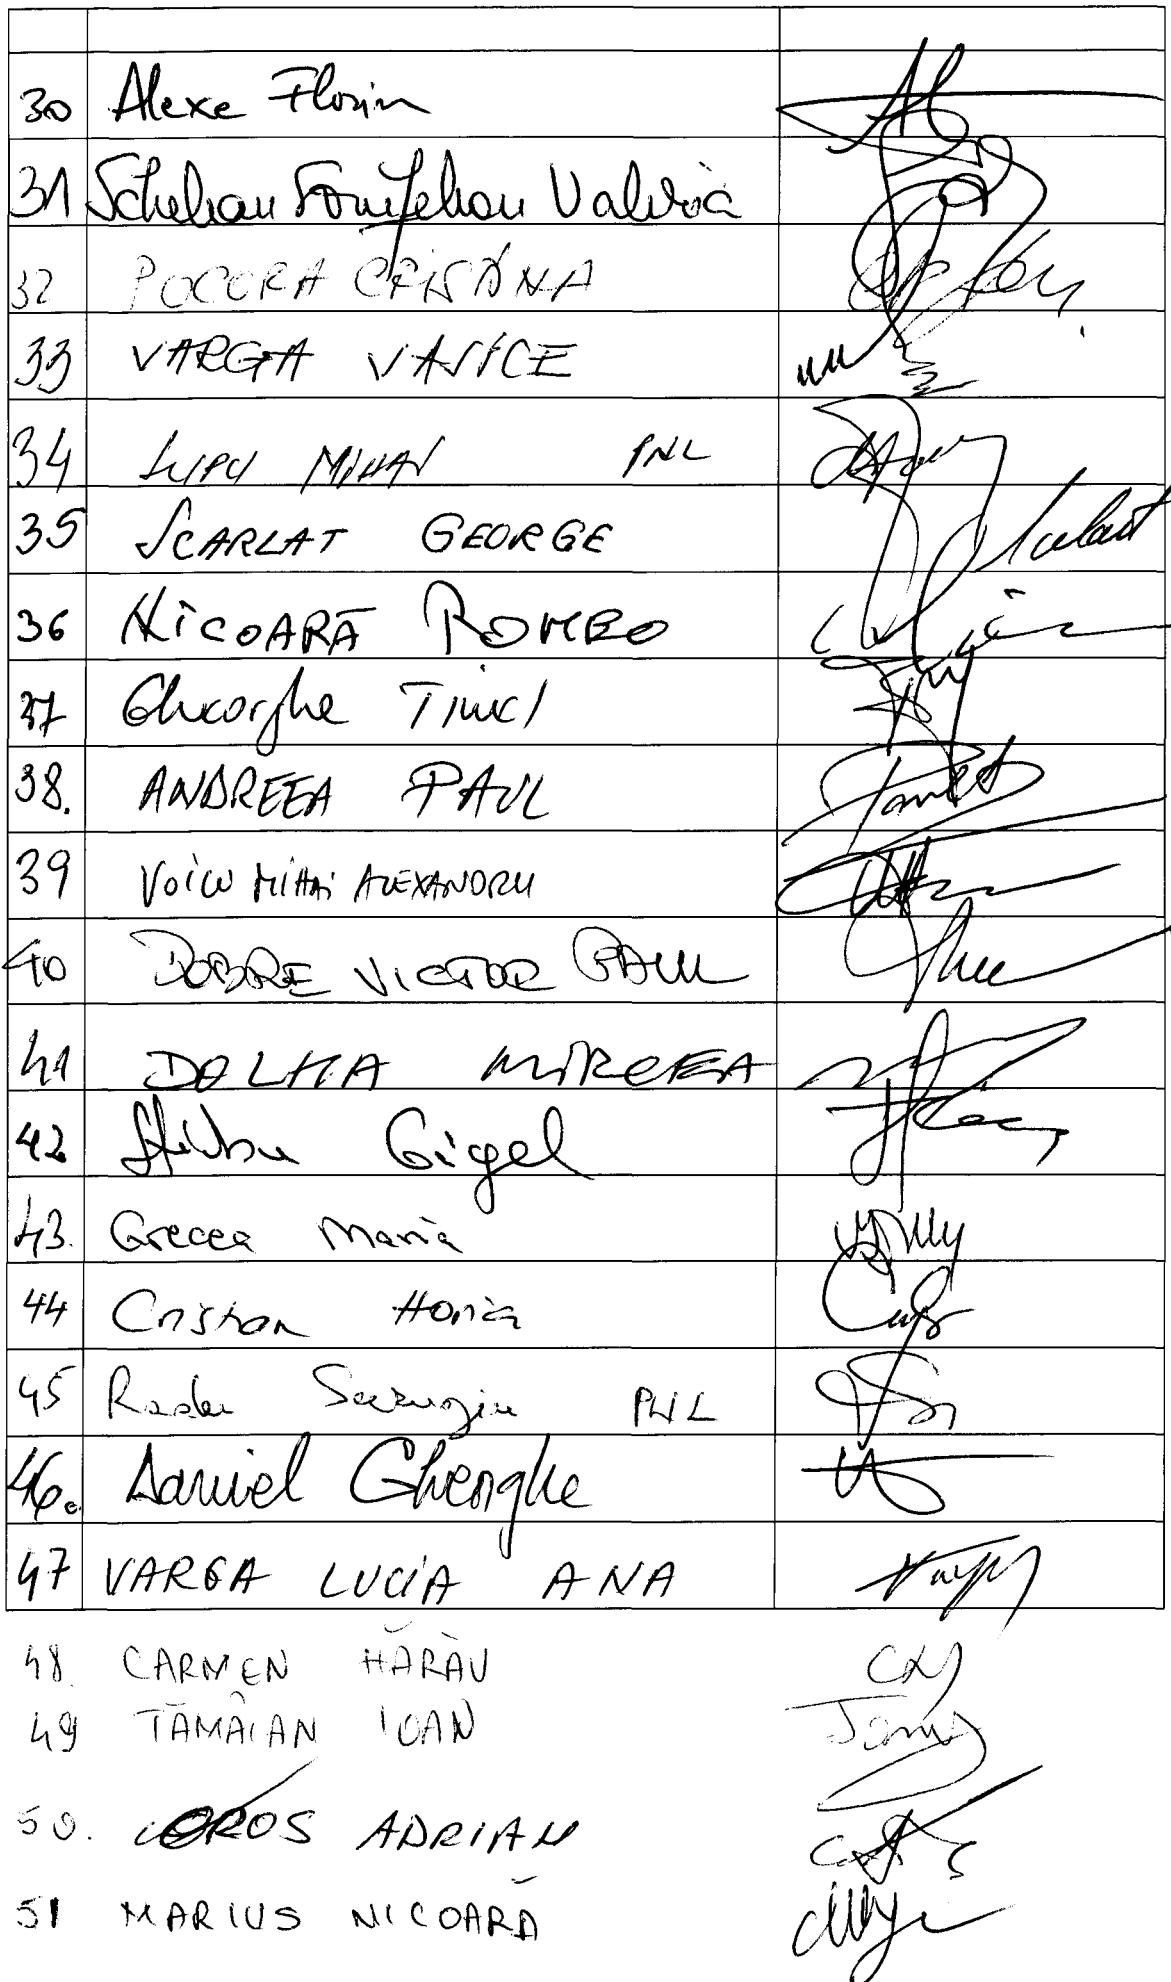 30 Alexe Florin
31 Schelean Şomfelean Valeria
32 POCORA CRISTINA
33 VARGA VASILE
34 LUPU MIHAI PNL
35 SCARLAT GEORGE
36 NICOARĂ ROMEO
37 Gheorghe Tinel
38. ANDREEA PAUL
39 VOICU MIHAI ALEXANDRU
40 DOBRE VICTOR PAUL
41 DOLHA MIRCEA
42 Știrbu Gigel
43. Grecea Maria
44 Cristian Horia
45 Radu Surugiu PNL
46. Daniel Gheorghe
47 VARGA LUCIA ANA
48. CARMEN HĂRĂU
49 TĂMÂIAN IOAN
50. ADRIAN
51 MARIUS NICOARĂ